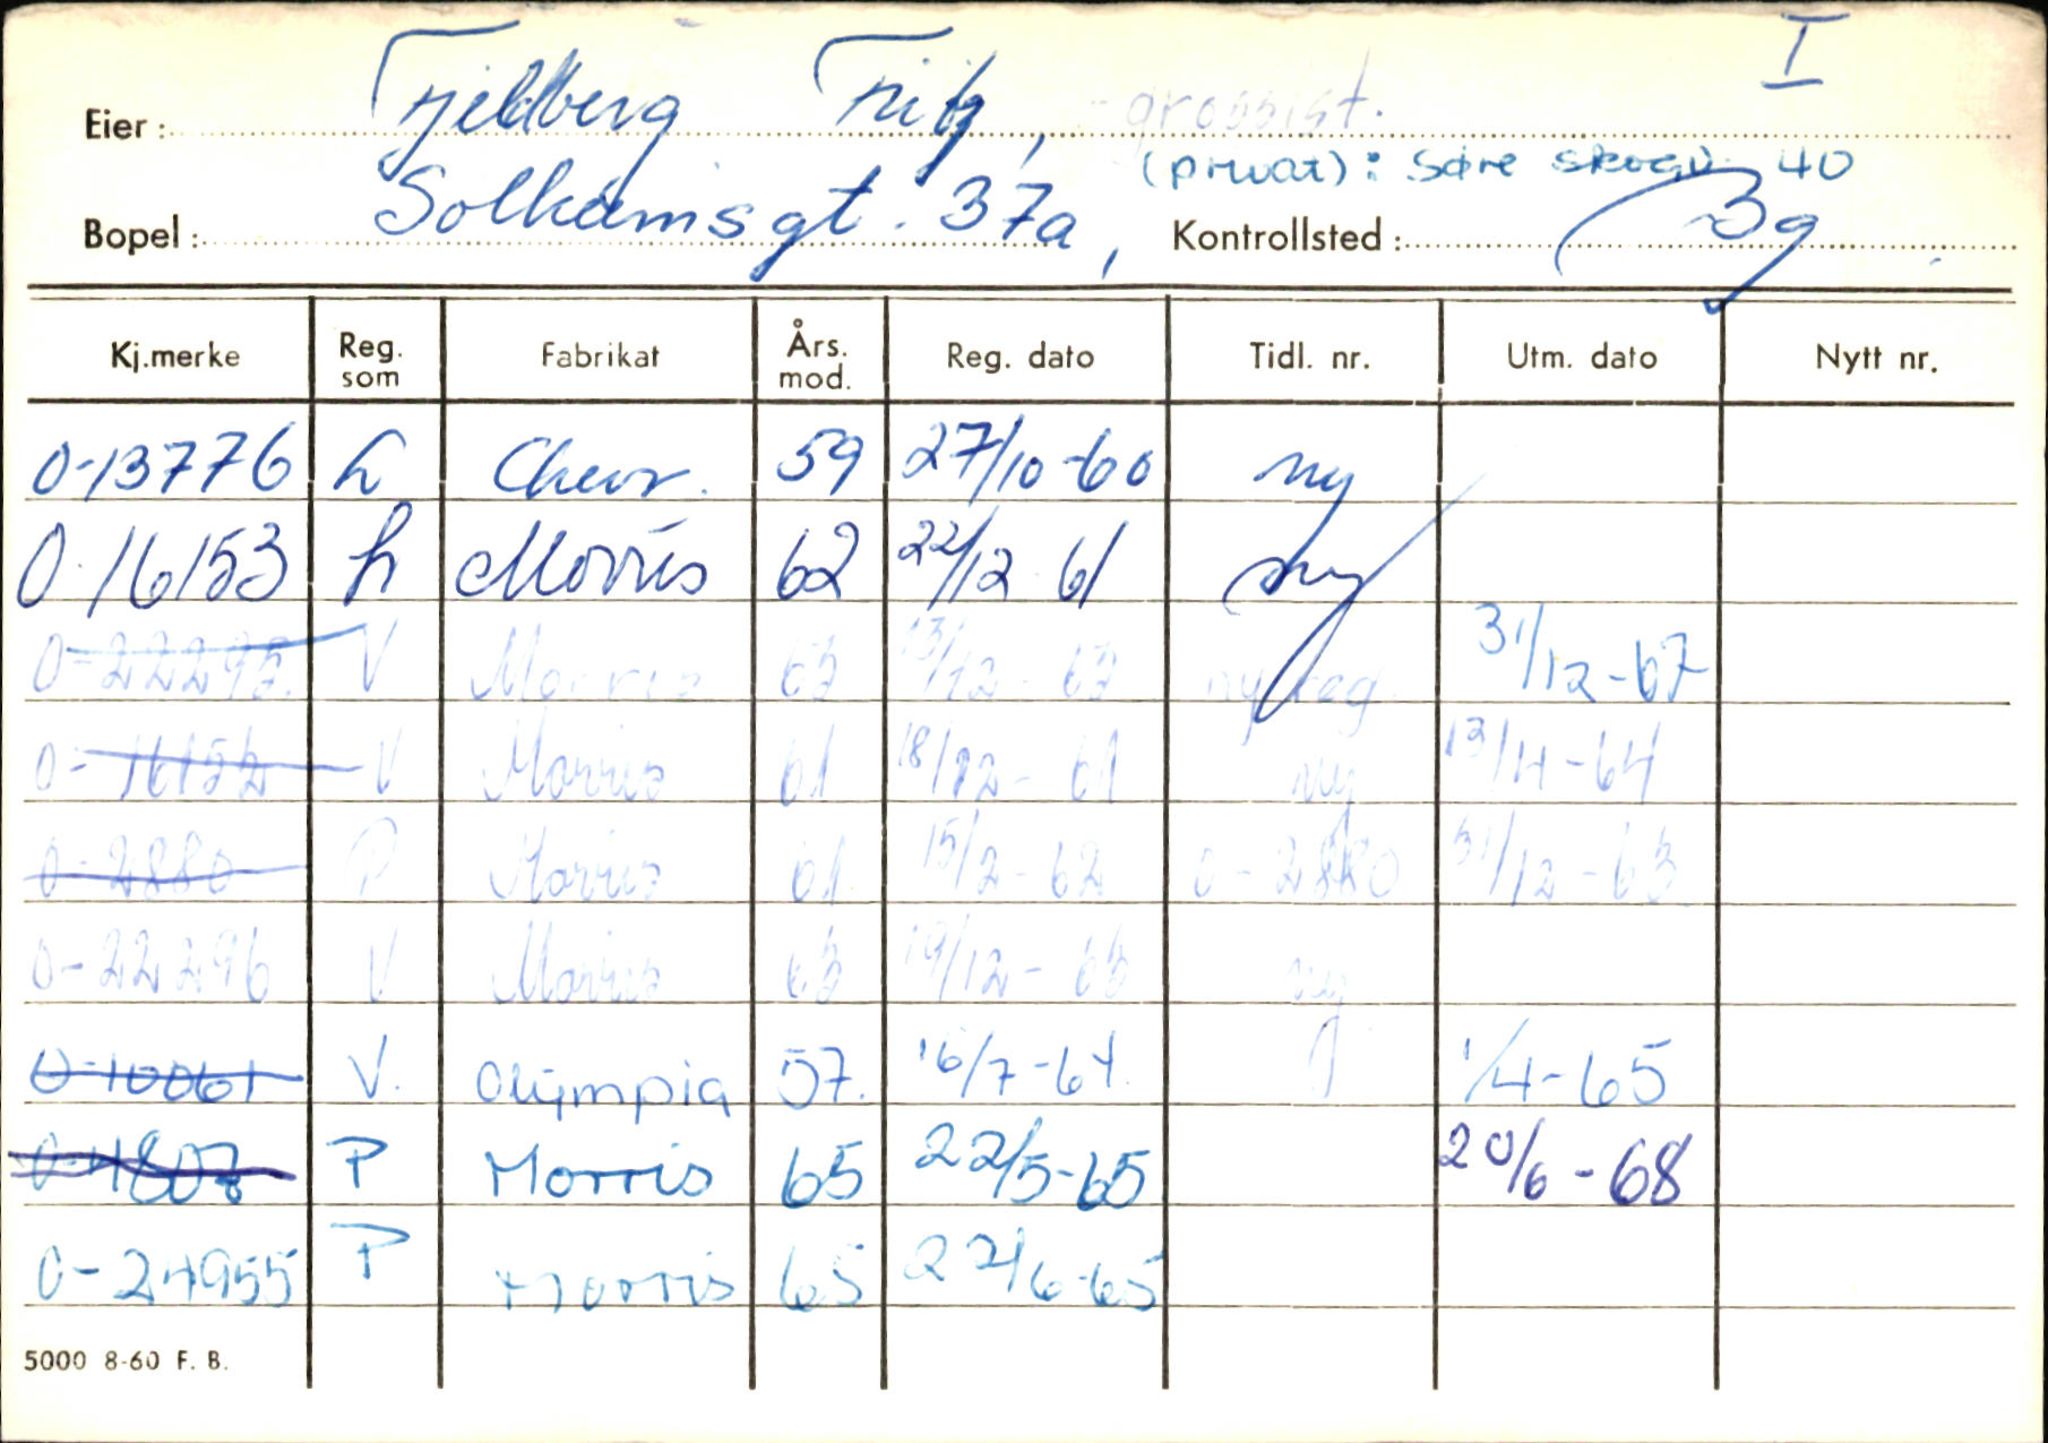 I
Eier: Fjeldberg Fritz, grossist.
(privat): Søre skogv. 40
Bopel: Solheimsgt. 37a, Kontrollsted: Bg
Kj.merke Reg. som Fabrikat Års. mod. Reg. dato Tidl. nr. Utm. dato Nytt nr.
O-13776 L Chevr. 59 27/10-60 ny
O-16153 L Morris 62 22/12 61 ny
O-22295 V Morris 63 13/12-63 ny reg. 31/12-67
O-16152 V Morris 61 18/12-61 ny 13/4-64
O-2880 P Morris 61 15/2-62 O-2820 31/12-63
O-22296 V Morris 63 19/12-63 ny
O-10061 V. Olympia 57. 16/7-64. 1/4-65
O-4807 P Morris 65 22/5-65 20/6-68
O-24955 P Morris 65 22/6-65
5000 8-60 F. B.